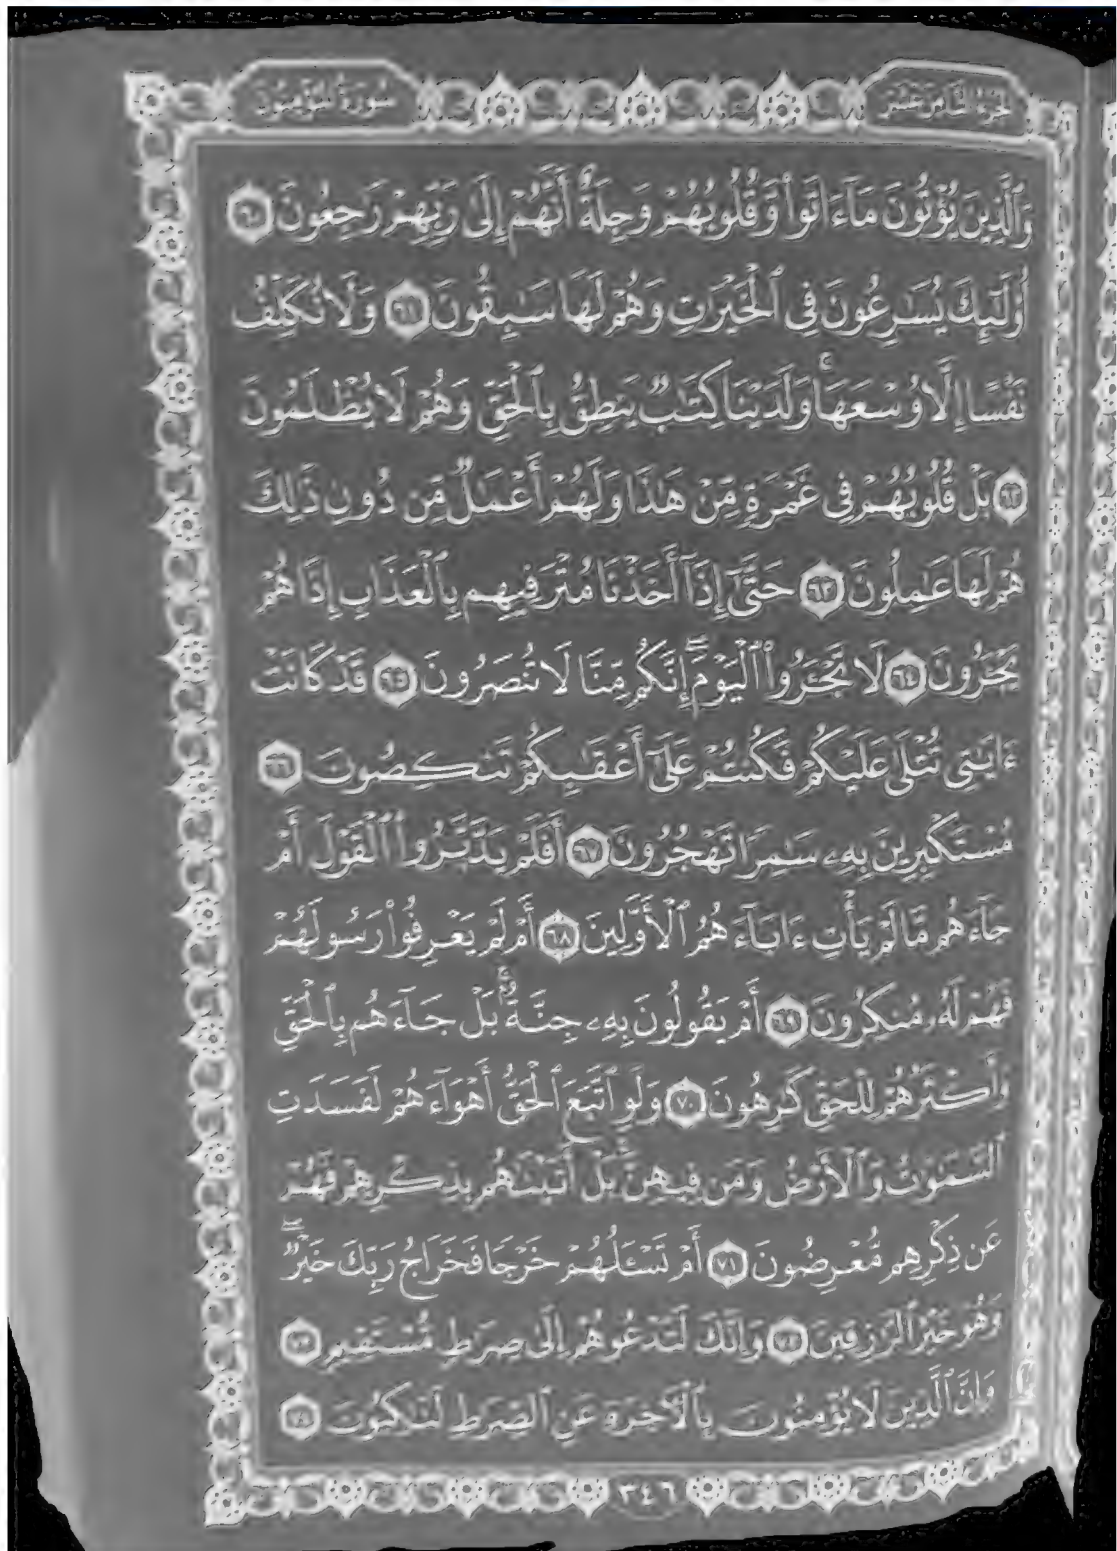 الجزء الثامن عشر
سورة المؤمنون
وَٱلَّذِينَ يُؤۡتُونَ مَآ ءَاتَواْ وَّقُلُوبُهُمۡ وَجِلَةٌ أَنَّهُمۡ إِلَىٰ رَبِّهِمۡ رَٰجِعُونَ ٦٠
أُوْلَٰٓئِكَ يُسَٰرِعُونَ فِي ٱلۡخَيۡرَٰتِ وَهُمۡ لَهَا سَٰبِقُونَ ٦١ وَلَا نُكَلِّفُ
نَفۡسًا إِلَّا وُسۡعَهَاۚ وَلَدَيۡنَا كِتَٰبٞ يَنطِقُ بِٱلۡحَقِّ وَهُمۡ لَا يُظۡلَمُونَ
٦٢ بَلۡ قُلُوبُهُمۡ فِي غَمۡرَةٖ مِّنۡ هَٰذَا وَلَهُمۡ أَعۡمَٰلٞ مِّن دُونِ ذَٰلِكَ
هُمۡ لَهَا عَٰمِلُونَ ٦٣ حَتَّىٰٓ إِذَآ أَخَذۡنَا مُتۡرَفِيهِم بِٱلۡعَذَابِ إِذَا هُمۡ
يَجۡـَٔرُونَ ٦٤ لَا تَجۡـَٔرُواْ ٱلۡيَوۡمَۖ إِنَّكُم مِّنَّا لَا تُنصَرُونَ ٦٥ قَدۡ كَانَتۡ
ءَايَٰتِي تُتۡلَىٰ عَلَيۡكُمۡ فَكُنتُمۡ عَلَىٰٓ أَعۡقَٰبِكُمۡ تَنكِصُونَ ٦٦
مُسۡتَكۡبِرِينَ بِهِۦ سَٰمِرٗا تَهۡجُرُونَ ٦٧ أَفَلَمۡ يَدَّبَّرُواْ ٱلۡقَوۡلَ أَمۡ
جَآءَهُم مَّا لَمۡ يَأۡتِ ءَابَآءَهُمُ ٱلۡأَوَّلِينَ ٦٨ أَمۡ لَمۡ يَعۡرِفُواْ رَسُولَهُمۡ
فَهُمۡ لَهُۥ مُنكِرُونَ ٦٩ أَمۡ يَقُولُونَ بِهِۦ جِنَّةُۢۚ بَلۡ جَآءَهُم بِٱلۡحَقِّ
وَأَكۡثَرُهُمۡ لِلۡحَقِّ كَٰرِهُونَ ٧٠ وَلَوِ ٱتَّبَعَ ٱلۡحَقُّ أَهۡوَآءَهُمۡ لَفَسَدَتِ
ٱلسَّمَٰوَٰتُ وَٱلۡأَرۡضُ وَمَن فِيهِنَّۚ بَلۡ أَتَيۡنَٰهُم بِذِكۡرِهِمۡ فَهُمۡ
عَن ذِكۡرِهِم مُّعۡرِضُونَ ٧١ أَمۡ تَسۡـَٔلُهُمۡ خَرۡجٗا فَخَرَاجُ رَبِّكَ خَيۡرٞۖ
وَهُوَ خَيۡرُ ٱلرَّٰزِقِينَ ٧٢ وَإِنَّكَ لَتَدۡعُوهُمۡ إِلَىٰ صِرَٰطٖ مُّسۡتَقِيمٖ ٧٣
وَإِنَّ ٱلَّذِينَ لَا يُؤۡمِنُونَ بِٱلۡأٓخِرَةِ عَنِ ٱلصِّرَٰطِ لَنَٰكِبُونَ ٧٤
٣٤٦